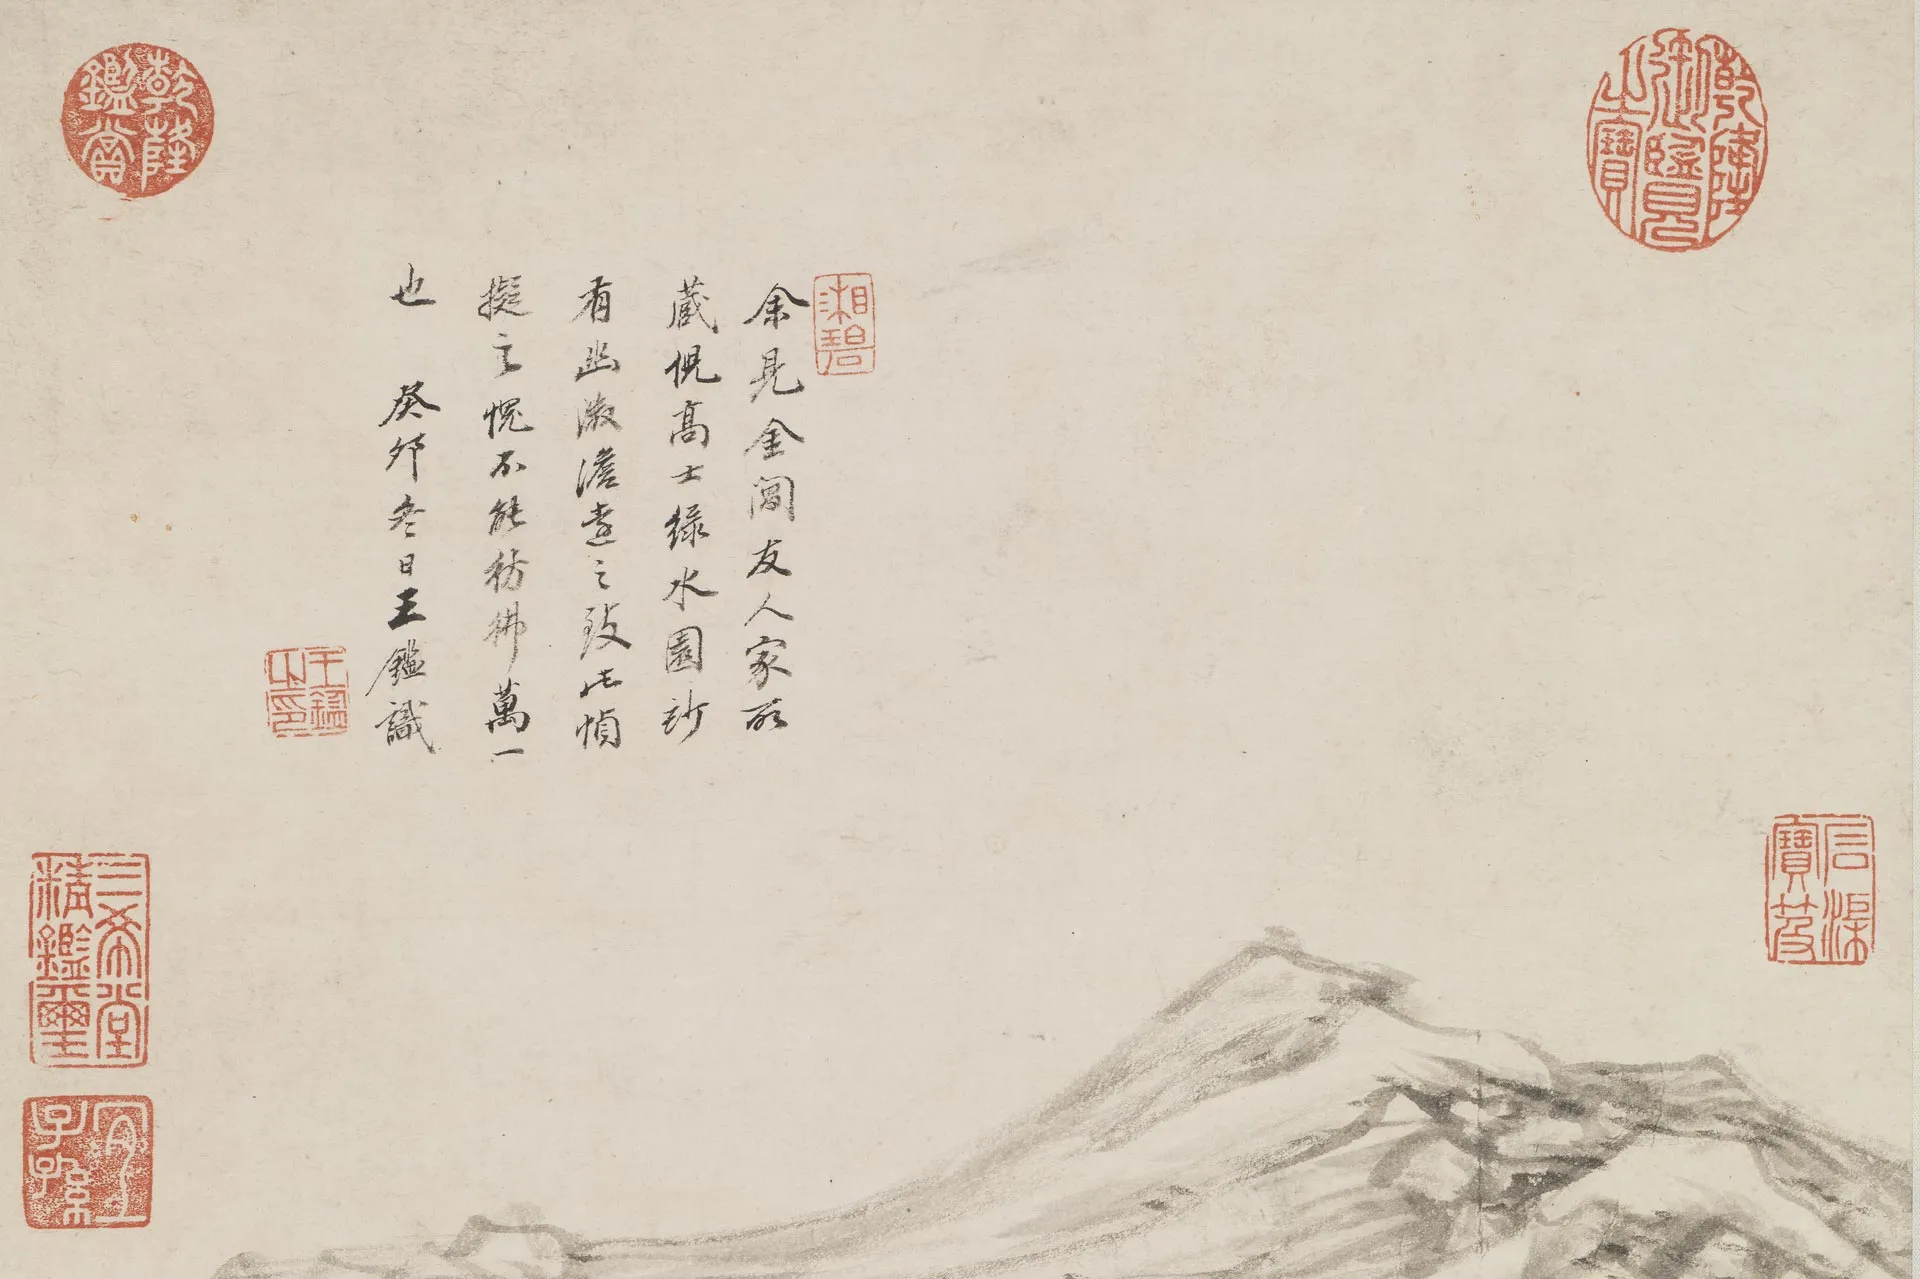 乾隆御覽之寶
石渠寶笈
湘碧
余見金閶友人家所
藏倪高士綠水園圖紗
有幽澂澹遠之致此幀
擬之愧不能彷彿萬一
也 癸卯冬日王鑑識
王鑑之印
乾隆鑑賞
三希堂精鑑璽
宜子孫